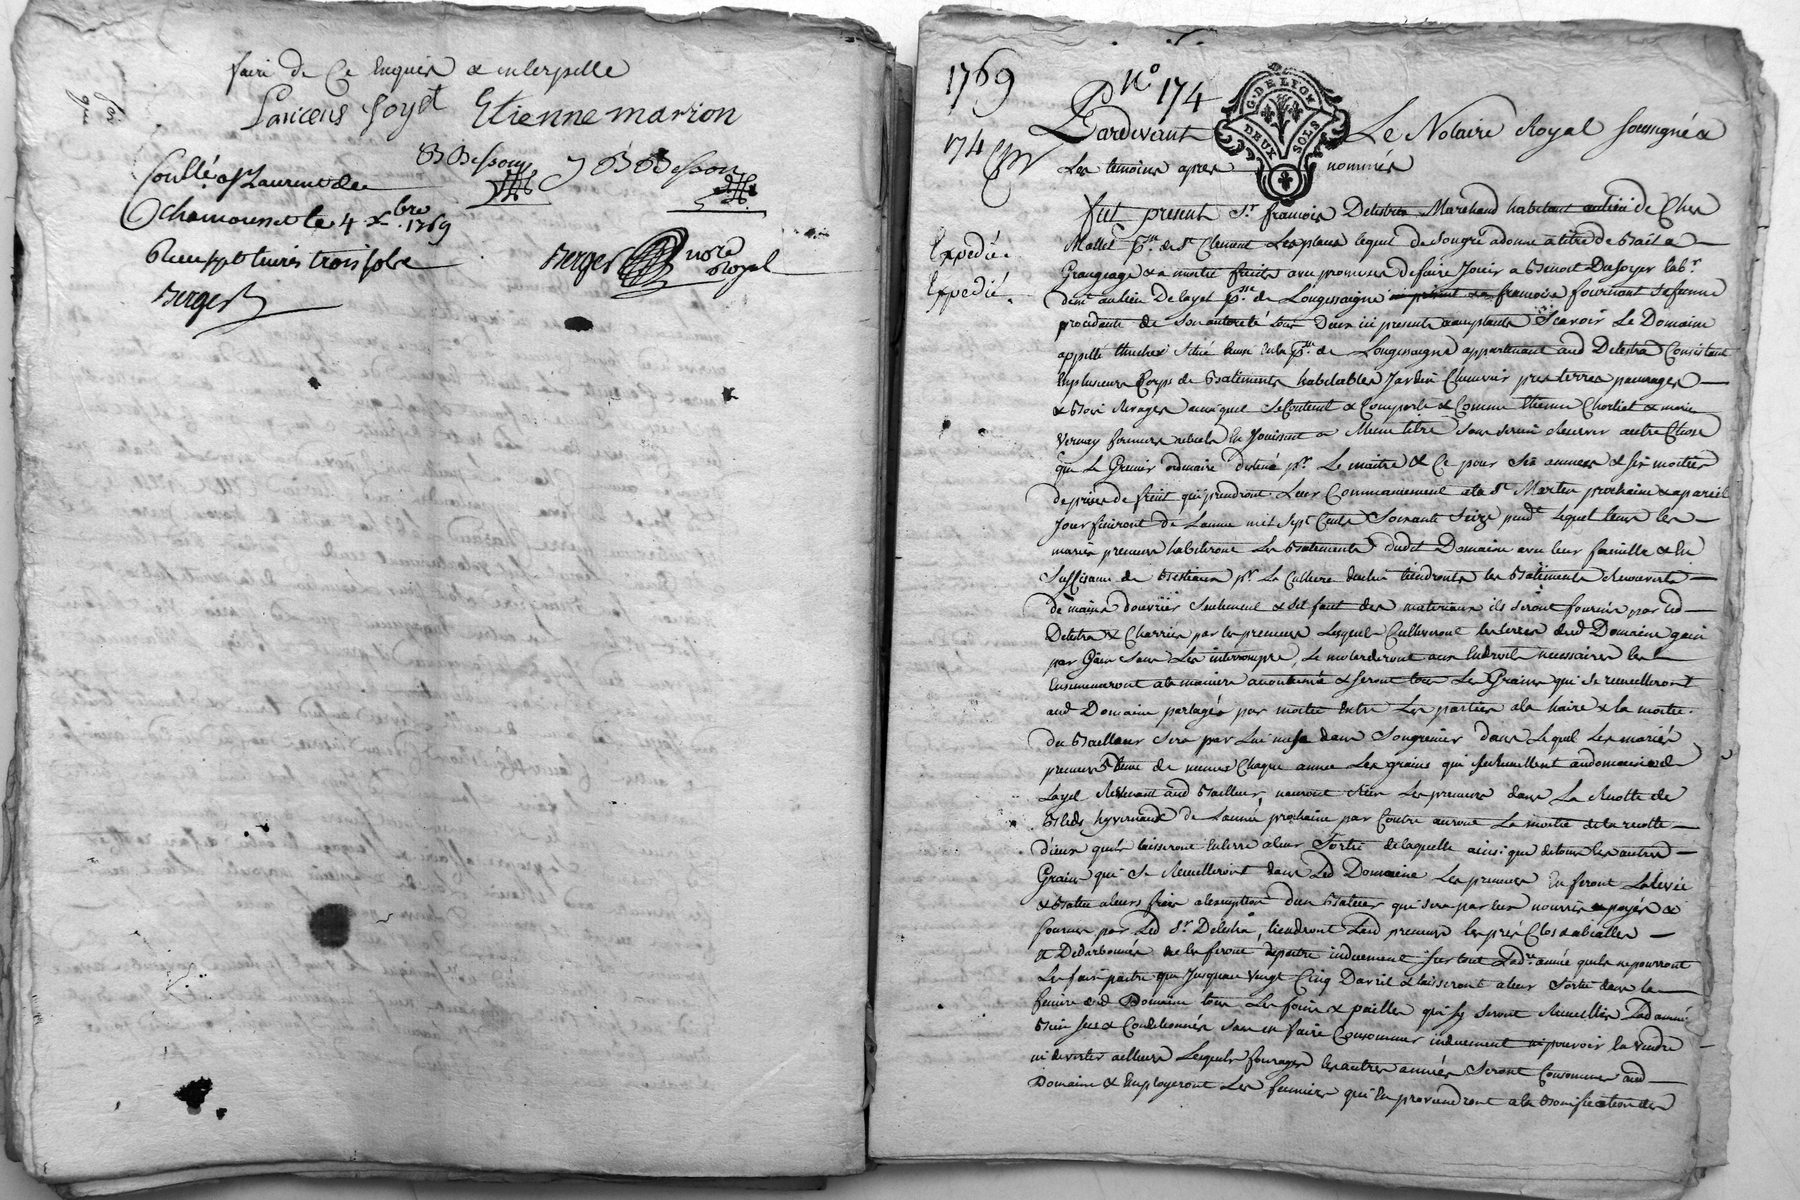 faire de Ce Enquis & interpellé
Soyet Etienne marion
BBesson JBBesson
Coullé a St Laurent de
Chamousset le 4 xbre 1769
Reçu trois sols
Berger
Berger nore
Royal
1769 No 174
174
G. DE LYON
DEUX SOLS
Pardevant Le Notaire Royal soussigné &
Les temoins apres nommés
fut present Sr. francois Delestra Marchand habitant au lieu de Chez
Expedié. Mallet psse de St Clement Les places lequel de son gré a donné a titre de Bail a
Grangeage & a moitié fruits avec promesse de faire Jouir a Benoit Dusoyer labr
Expedié. demt au lieu De layet psse de Longessaigne francoise fournant sa femme
procedante de son autorité tous deux ici presents acceptants Scavoir Le Domaine
appellé situé aussi en la psse de Longessaigne appartenant aud Delestra Consistant
En plusieurs Corps de Batiments habitables Jardin Chenevier pres terres paccages
& Bois ainsi que se Contient & Comporte & Comme Etienne Chorliet & marie
Vernay fermiers actuels En Jouissent a Meme titre sans se rien Reserver autre Chose
que Le Grenier ordinaire destiné pr. Le maitre & Ce pour six années & six moitiés
de prise de fruit qui prendront Leur Commancement a la St Martin prochaine & a pareil
Jour finiront de L'année mil sept Cents Soixante Seize pendt lequel tems les
mariés preneurs habiteront Les Batiments dudit Domaine avec leur famille & En
suffisance de Bestiaux pr La Culture d'icelui tiendront les Batiments Recouverts
de mains d'ouvrier seulement & s'il faut des materiaux ils seront fournis par led
Delestra & Charriés par les preneurs Lesquels Cultiveront les terres dud Domaine
par sans Les interrompre, Le aux Endroits necessaires les
Ensemenceront a la maniere accoutumée & seront tous Les Grains qui se recueilleront
aud Domaine partagés par moitié Entre Les parties a la & la moitié
du Bailleur sera par Lui mise dans son grenier dans Lequel Les mariés
preneurs de mener Chaque année Les grains qui se recueillent au domaine de
Layet Revenant aud Bailleur, n'auront Rien Les preneurs dans La Recolte de
Bleds hyvernaux de L'année prochaine par Contre auront La moitié de la recolte
d'iceux qu'ils laisseront En terre a leur sortie de laquelle ainsi que de tous les autres
Grains qui se Recueilleront dans Led Domaine Les preneurs En feront La levée
& Battue a leurs frais a l'exception d'un Batteur qui sera par Eux nourri & payé &
fourni par Led Sr. Delestra, tiendront Lesd preneurs les prés Clos
& Debarbonnés ne les feront depaitre induement surtout Ladre année qu'ils ne pourront
Les faire paitre que Jusqu'au vingt Cinq D'avril & laisseront a leur Sortie dans la
feniere dud Domaine tous Les foins & pailles qui sy seront Recueillis Lad année
Bien secs & Conditionnés sans En faire Consommer induement ni pouvoir la vendre
ni divertir ailleurs Lesquels fourages les autres années seront Consommés aud
Domaine & Employeront Les fumiers qui En proviendront a la Bonification des